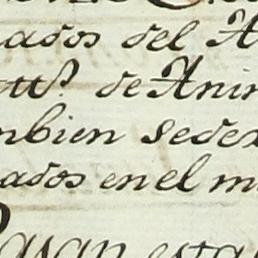 ados del A
tt.º de Anim
mbien sedex
ados en el m
Pasan esta